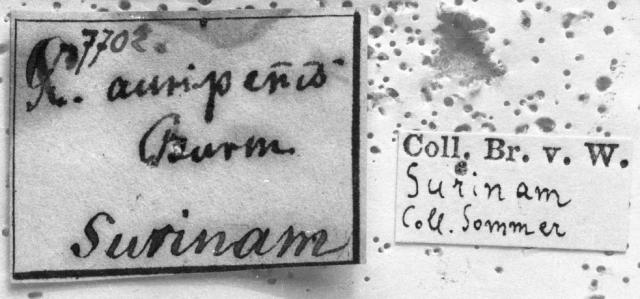 7702.
R. auripenis
Burm.
Surinam
Coll. Br. v. W.
Surinam
Coll. Sommer